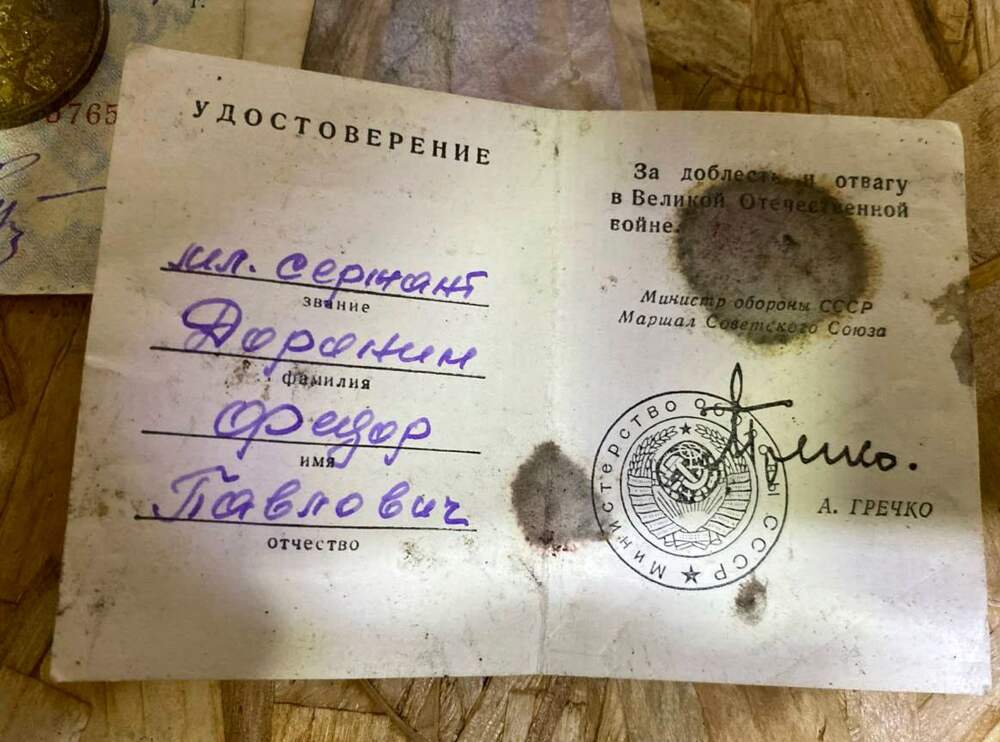 г.
8765
УДОСТОВЕРЕНИЕ
мл. сержант
звание
Доронин
фамилия
Федор
имя
Павлович
отчество
За доблесть и отвагу
в Великой Отечественной
войне.
Министр обороны СССР
Маршал Советского Союза
МИНИСТЕРСТВО ОБОРОНЫ СССР
А. ГРЕЧКО